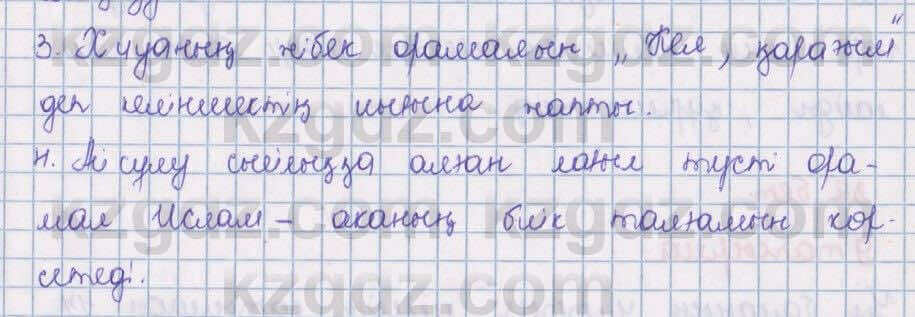 3. Хиуаның жібек орамалын „Кел, қарағым"
деп келіншектің иығына жапты.
4. Айсұлу сыйлыққа алған лағыл түсті ора-
мал Ислам - аканың биік талғамын көр-
сетеді.
kzgdz.com